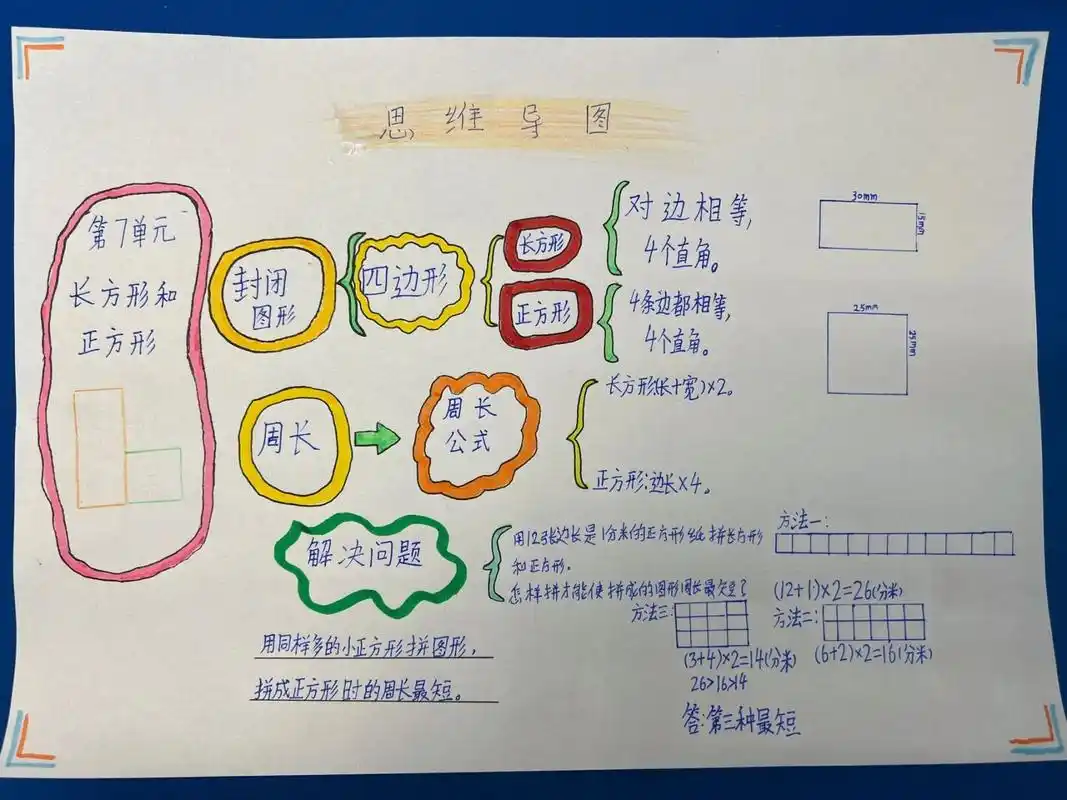 思维导图
第7单元
长方形和
正方形
封闭
图形
四边形
长方形
对边相等,
4个直角。
正方形
4条边都相等,
4个直角。
30mm
15mm
25mm
25mm
周长
周长
公式
长方形:(长+宽)×2。
正方形:边长×4。
解决问题
用12张边长是1分米的正方形纸拼长方形
和正方形。
怎样拼才能使拼成的图形周长最短?
方法一:
(12+1)×2=26(分米)
方法二:
(6+2)×2=16(分米)
方法三:
(3+4)×2=14(分米)
26>16>14
答:第三种最短
用同样多的小正方形拼图形,
拼成正方形时的周长最短。